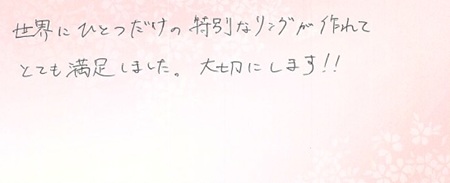 世界にひとつだけの特別なリングが作れて
とても満足しました。大切にします!!